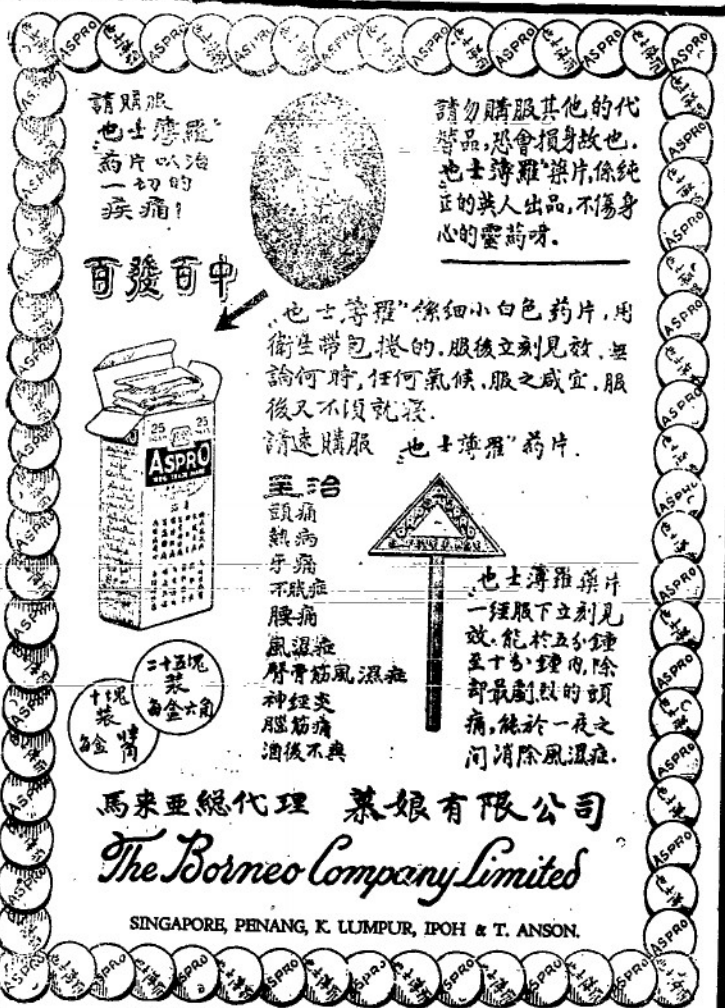 請購服
"也士薄羅"
藥片以治
一切的
疾痛!
請勿購服其他的代
替品,恐會損身故也.
"也士薄羅"藥片,係純
正的英人出品,不傷身
心的靈葯呀.
百發百中
"也士薄羅"係細小白色葯片,用
衛生帶包捲的.服後立刻見效.無
論何時,任何氣候.服之咸宜.服
後又不須就寢.
請速購服 "也士薄羅"葯片.
25
25
ASPRO
主治
頭痛
熱病
牙痛
不眠症
腰痛
風濕症
臂骨筋風濕症
神經炎
腦筋痛
酒後不爽
"也士薄羅藥片
一經服下立刻見
效.能於五分鐘
至十分鐘內,除
却最劇烈的頭
痛,能於一夜之
间消除風濕症.
二十五塊
裝
每盒六角
十塊
裝
每盒
馬来亜総代理 慕娘有限公司
The Borneo Company Limited
SINGAPORE, PENANG, K. LUMPUR, IPOH & T. ANSON.